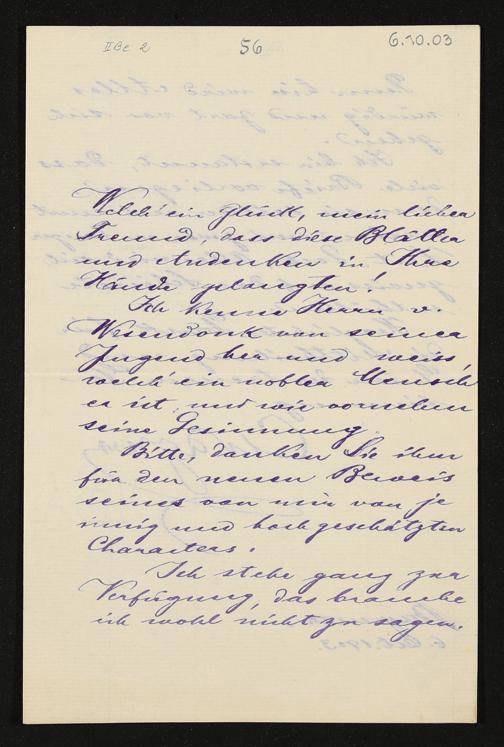 II Be 2
56
6.10.03
Welch' ein Glück, mein lieber
Freund, dass diese Blätter
und Andenken in Ihre
Hände gelangten!
Ich kenne Herrn v.
Wesendonk von seiner
Jugend her und weiss,
welch' ein nobler Mensch
er ist, und wie vornehm
seine Gesinnung.
Bitte, danken Sie ihm
für den neuen Beweis
seines von mir von je
innig und hochgeschätzten
Characters.
Ich stehe ganz zur
Verfügung, das brauche
ich wohl nicht zu sagen.